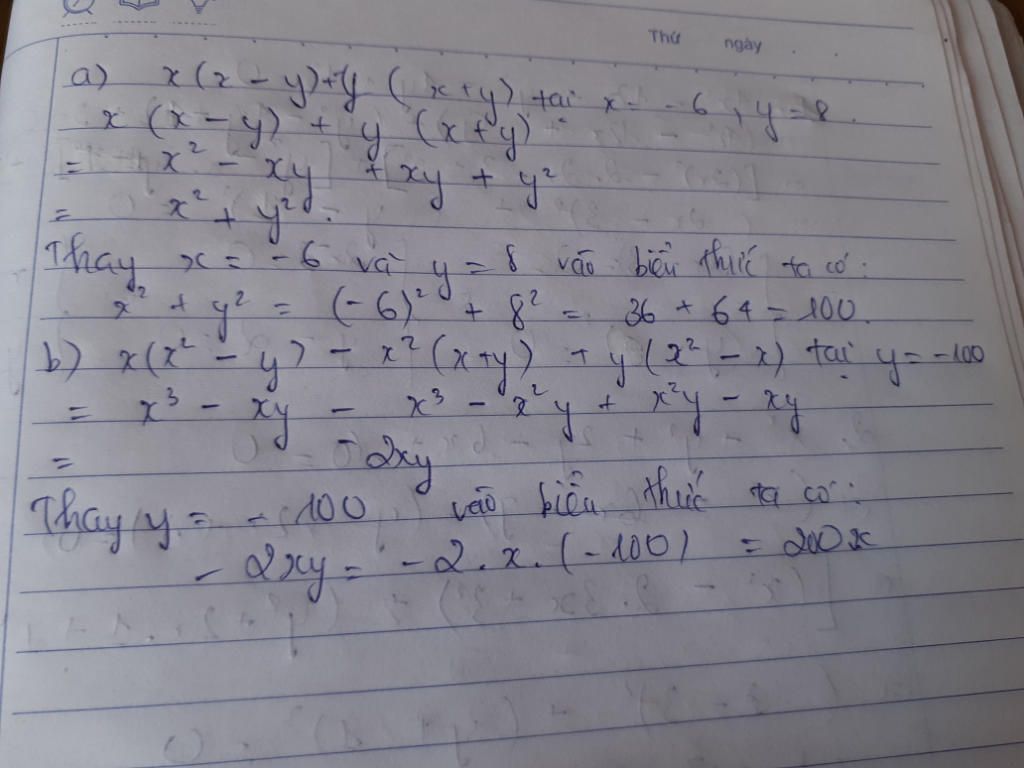 Thứ ngày . .
a) x(x - y)+y (x+y) tại x = -6, y = 8.
x (x - y) + y (x+y)
= x² - xy + xy + y²
= x² + y².
Thay x = -6 và y = 8 vào biểu thức ta có:
x² + y² = (-6)² + 8² = 36 + 64 = 100.
b) x(x² - y) - x²(x+y) + y(x² - x) tại y = -100
= x³ - xy - x³ - x²y + x²y - xy
= -2xy
Thay y = - 100 vào biểu thức ta có:
- 2xy = -2.x.(-100) = 200x